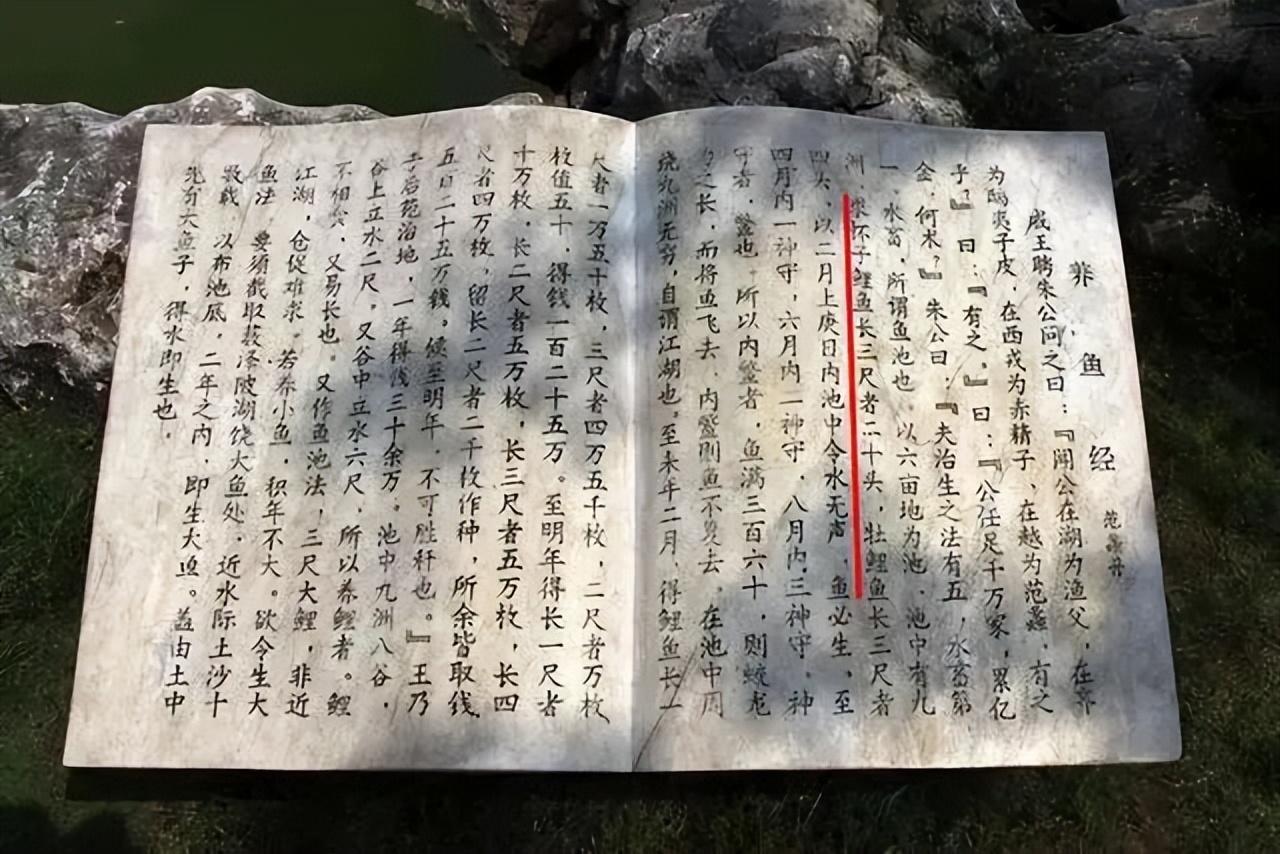 养鱼经 范蠡著
威王聘朱公问之曰：『闻公在湖为渔父，在齐
为鸱夷子皮，在西戎为赤精子，在越为范蠡，有之
乎？』曰：『有之。』曰：『公任足千万家，累亿
金，何术？』朱公曰：『夫治生之法有五，水畜第
一，水畜，所谓鱼池也。以六亩地为池，池中有九
洲，求怀子鲤鱼长三尺者二十头，牡鲤鱼长三尺者
四头，以二月上庚日内池中令水无声，鱼必生，至
四月内一神守，六月内二神守，八月内三神守，神
守者，鳖也。所以内鳖者，鱼满三百六十，则蛟龙
为之长，而将鱼飞去，内鳖则鱼不复去。在池中周
绕九洲无穷，自谓江湖也。至来年二月，得鲤鱼长一
尺者一万五千枚，三尺者四万五千枚，二尺者万枚
枚值五十，得钱一百二十五万。至明年得长一尺者
十万枚，长二尺者五万枚，长三尺者五万枚，长四
尺者四万枚，留长二尺者二千枚作种，所余皆取钱
五百二十五万钱。候至明年，不可胜秤也。』王乃
于后苑治地，一年得钱三十余万。池中九洲八谷，
谷上立水二尺，又谷中立水六尺，所以养鲤者。鲤
不相食，又易长也。又作鱼池法，三尺大鲤，非近
江湖，仓促难求。若养小鱼，积年不大。欲令生大
鱼法 要须截取薮泽陂湖饶大鱼处，近水际土沙十
数载，以布池底，二年之内，即生大鱼。盖由土中
先有大鱼子，得水即生也。